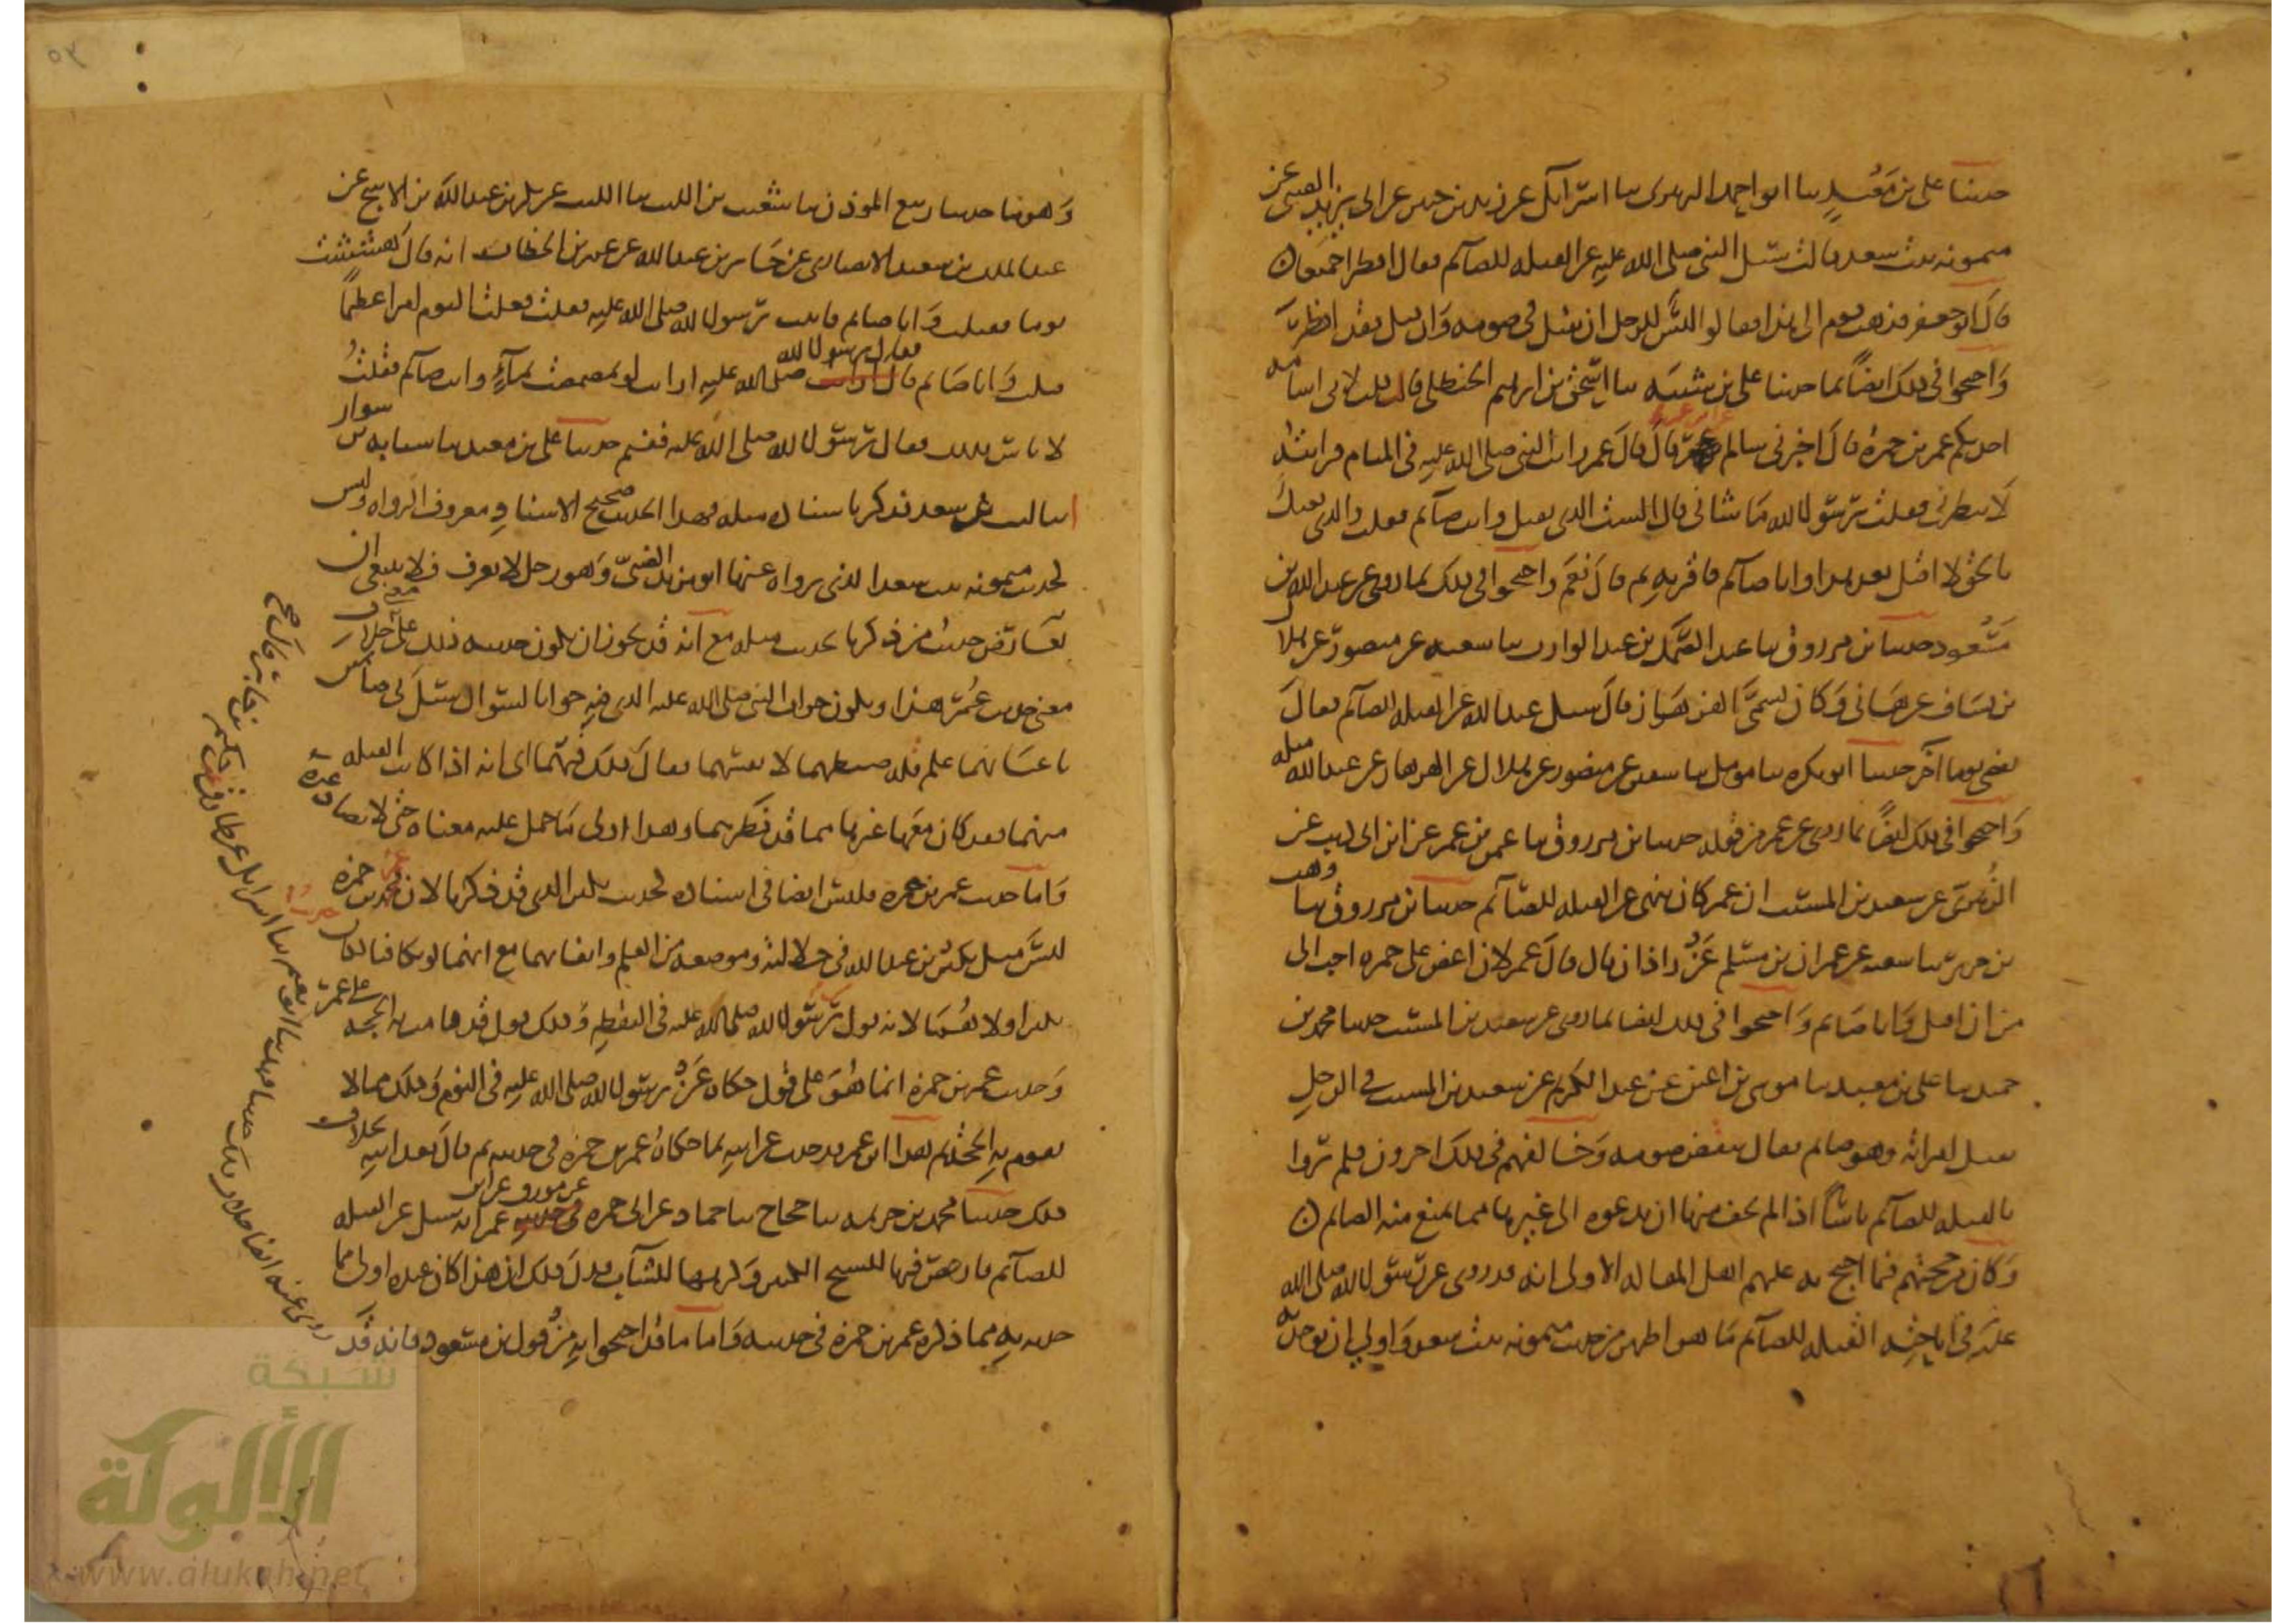 حدثنا على بن مَعْبدٍ ثنا ابو احمد الزبيرى ثنا اسرائل عن زيد بن جبير عن ابى يزيد الضبى عن
ميمونه بنت سعد قالت سئل النبى صلى الله عليه عن القبله للصائم فقال افطرا جميعا ن
قال ابو جعفر فذهب قوم الى هذا فقالوا ليس للرجل ان يقبل فى صومه وان قبل فقد افطر
واحتجوا فى ذلك ايضاً بما حدثنا على بن شيبه ثنا اسحق بن ابرهيم الحنظلى قال قلت لابى اسامه
احدثكم عمر بن حمزه قال اخبرنى سالم عن ابن عمر قال قال عمر رايت النبى صلى الله عليه فى المنام فرايته
لا ينظرنى فقلت يرسول الله ما شانى قال الست الذى تقبل وانت صائم فقلت والذى بعثك
بالحق لا اقبل بعد هذا وانا صائم فاقر به ثم قال نعم واحتجوا فى ذلك بما روى عن عبد الله بن
مسعود حدثنا بن مرزوق ثنا عبد الصمد بن عبد الوارث ثنا شعبه عن منصور عن هلال
بن يساف عن هانى وكان يسمى الهزهاز قال سئل عبد الله عن القبله للصائم فقال
يقضى يوما آخر حدثنا ابو بكره ثنا مومل ثنا سفين عن منصور عن هلال عن الهزهاز عن عبد الله مثله
واحتجوا فى ذلك ايضاً بما روى عن عمر من قوله حدثنا بن مرزوق ثنا عثمن بن عمر عن ابن ابى ذيب عن
الزهرى عن سعيد بن المسيب ان عمر كان ينهى عن القبله للصائم حدثنا بن مرزوق ثنا وهب
بن جرير ثنا شعبه عن عمران بن مسلم عن زاذان قال قال عمر لان اعض على جمره احب الى
من ان اقبل وانا صايم واحتجوا فى ذلك ايضا بما روى عن سعيد بن المسيب حدثنا محمد بن
حميد ثنا على بن معبد ثنا موسى بن اعين عن عبد الكريم عن سعيد بن المسيب فى الرجل
يقبل امراته وهو صايم فقال ينقض صومه وخالفهم فى ذلك اخرون فلم يروا
بالقبله للصائم باساً اذا لم يخف منها ان يدعوه الى غيرها مما يمنع منه الصايم ن
وكان من حجتهم فيما احتج به عليهم اهل المقاله الاولى انه قد روى عن رسول الله صلى الله
عليه فى اباحته القبله للصائم ما هو اظهر من حديث ميمونه بنت سعد واولى ان يوخذ به
وهو ما حدثنا ربيع الموذن ثنا شعيب بن الليث ثنا الليث عن بكر بن عبد الله بن الاشج عن
عبد الملك بن سعيد الانصارى عن جابر بن عبد الله عن عمر بن الخطاب انه قال هششت
يوما فقبلت وانا صايم فاتيت رسول الله صلى الله عليه فقلت فعلت اليوم امرا عظيمًا
قبلت وانا صايم فقال رسول الله صلى الله عليه ارايت لو تمضمضت بمآءٍ وانت صائم فقلتُ
لا باس بذلك فقال رسول الله صلى الله عليه ففيم حدثنا على بن معبد ثنا شبابه بن سوار
انا ليث بن سعد فذكر باسناده مثله فهذا الحديث صحيح الاسناد معروف الرواه وليس
لحديث ميمونه بنت سعد الذى رواه عنها ابو يزيد الضبىّ وهو رجل لا يعرف فلا ينبغى ان
يعارض حديث من ذكرنا بحديث مثله مع انه قد يجوز ان يكون حديثه ذلك على خلاف
معنى حديث عُمَر هذا ويكون جواب النبى صلى الله عليه الذى فيه جوابا لسوال سئل فى صائمين
باعيانهما علم قله ضبطهما لانفسهما فقال ذلك فيهما اى انه اذا كانت القبله
منهما فقد كان معها غيرها مما قد فطرهما وهذا اولى ما حمل عليه معناه حتى لا يضاد غيره
واما حديث عمر بن حمزه فليس ايضا فى اسناده كحديث بكير الذى قد ذكرنا لان عمر بن حمزه
ليس مثل بكير بن عبد الله فى جلالته وموضعه من العلم واتقانه مع انهما لو تكافئا لكان حديث
بكير اولاهُما لانه قول رسول الله صلى الله عليه فى اليقظه وذلك قول قد قامت به الحجه على عمر
وحديث عمر بن حمزه انما هو على قول حكاه عن رسول الله صلى الله عليه فى النوم وذلك مما لا
يقوم به الحجه ثم هذا ابن عمر قد حدث عن ابيه بما حكاه عمر بن حمزه فى حديثه ثم قال بعد ابيه بخلاف
ذلك حدثنا محمد بن خزيمه ثنا حجاج ثنا حماد عن ابى حمزه عن مورق عن ابن عمر انه سئل عن القبله
للصائم فارخص فيها للشيخ الكبير وكرهها للشاب فدل ذلك ان هذا كان عنده اولى مما
حدثه به مما ذكره عمر بن حمزه فى حديثه واما ما قد احتجوا به من قول بن مسعود فانه قد
روى عنه ايضا خلاف ذلك حدثنا فهد ثنا ابو نعيم ثنا اسرائل عن طارق عن حكيم بن جابر قال